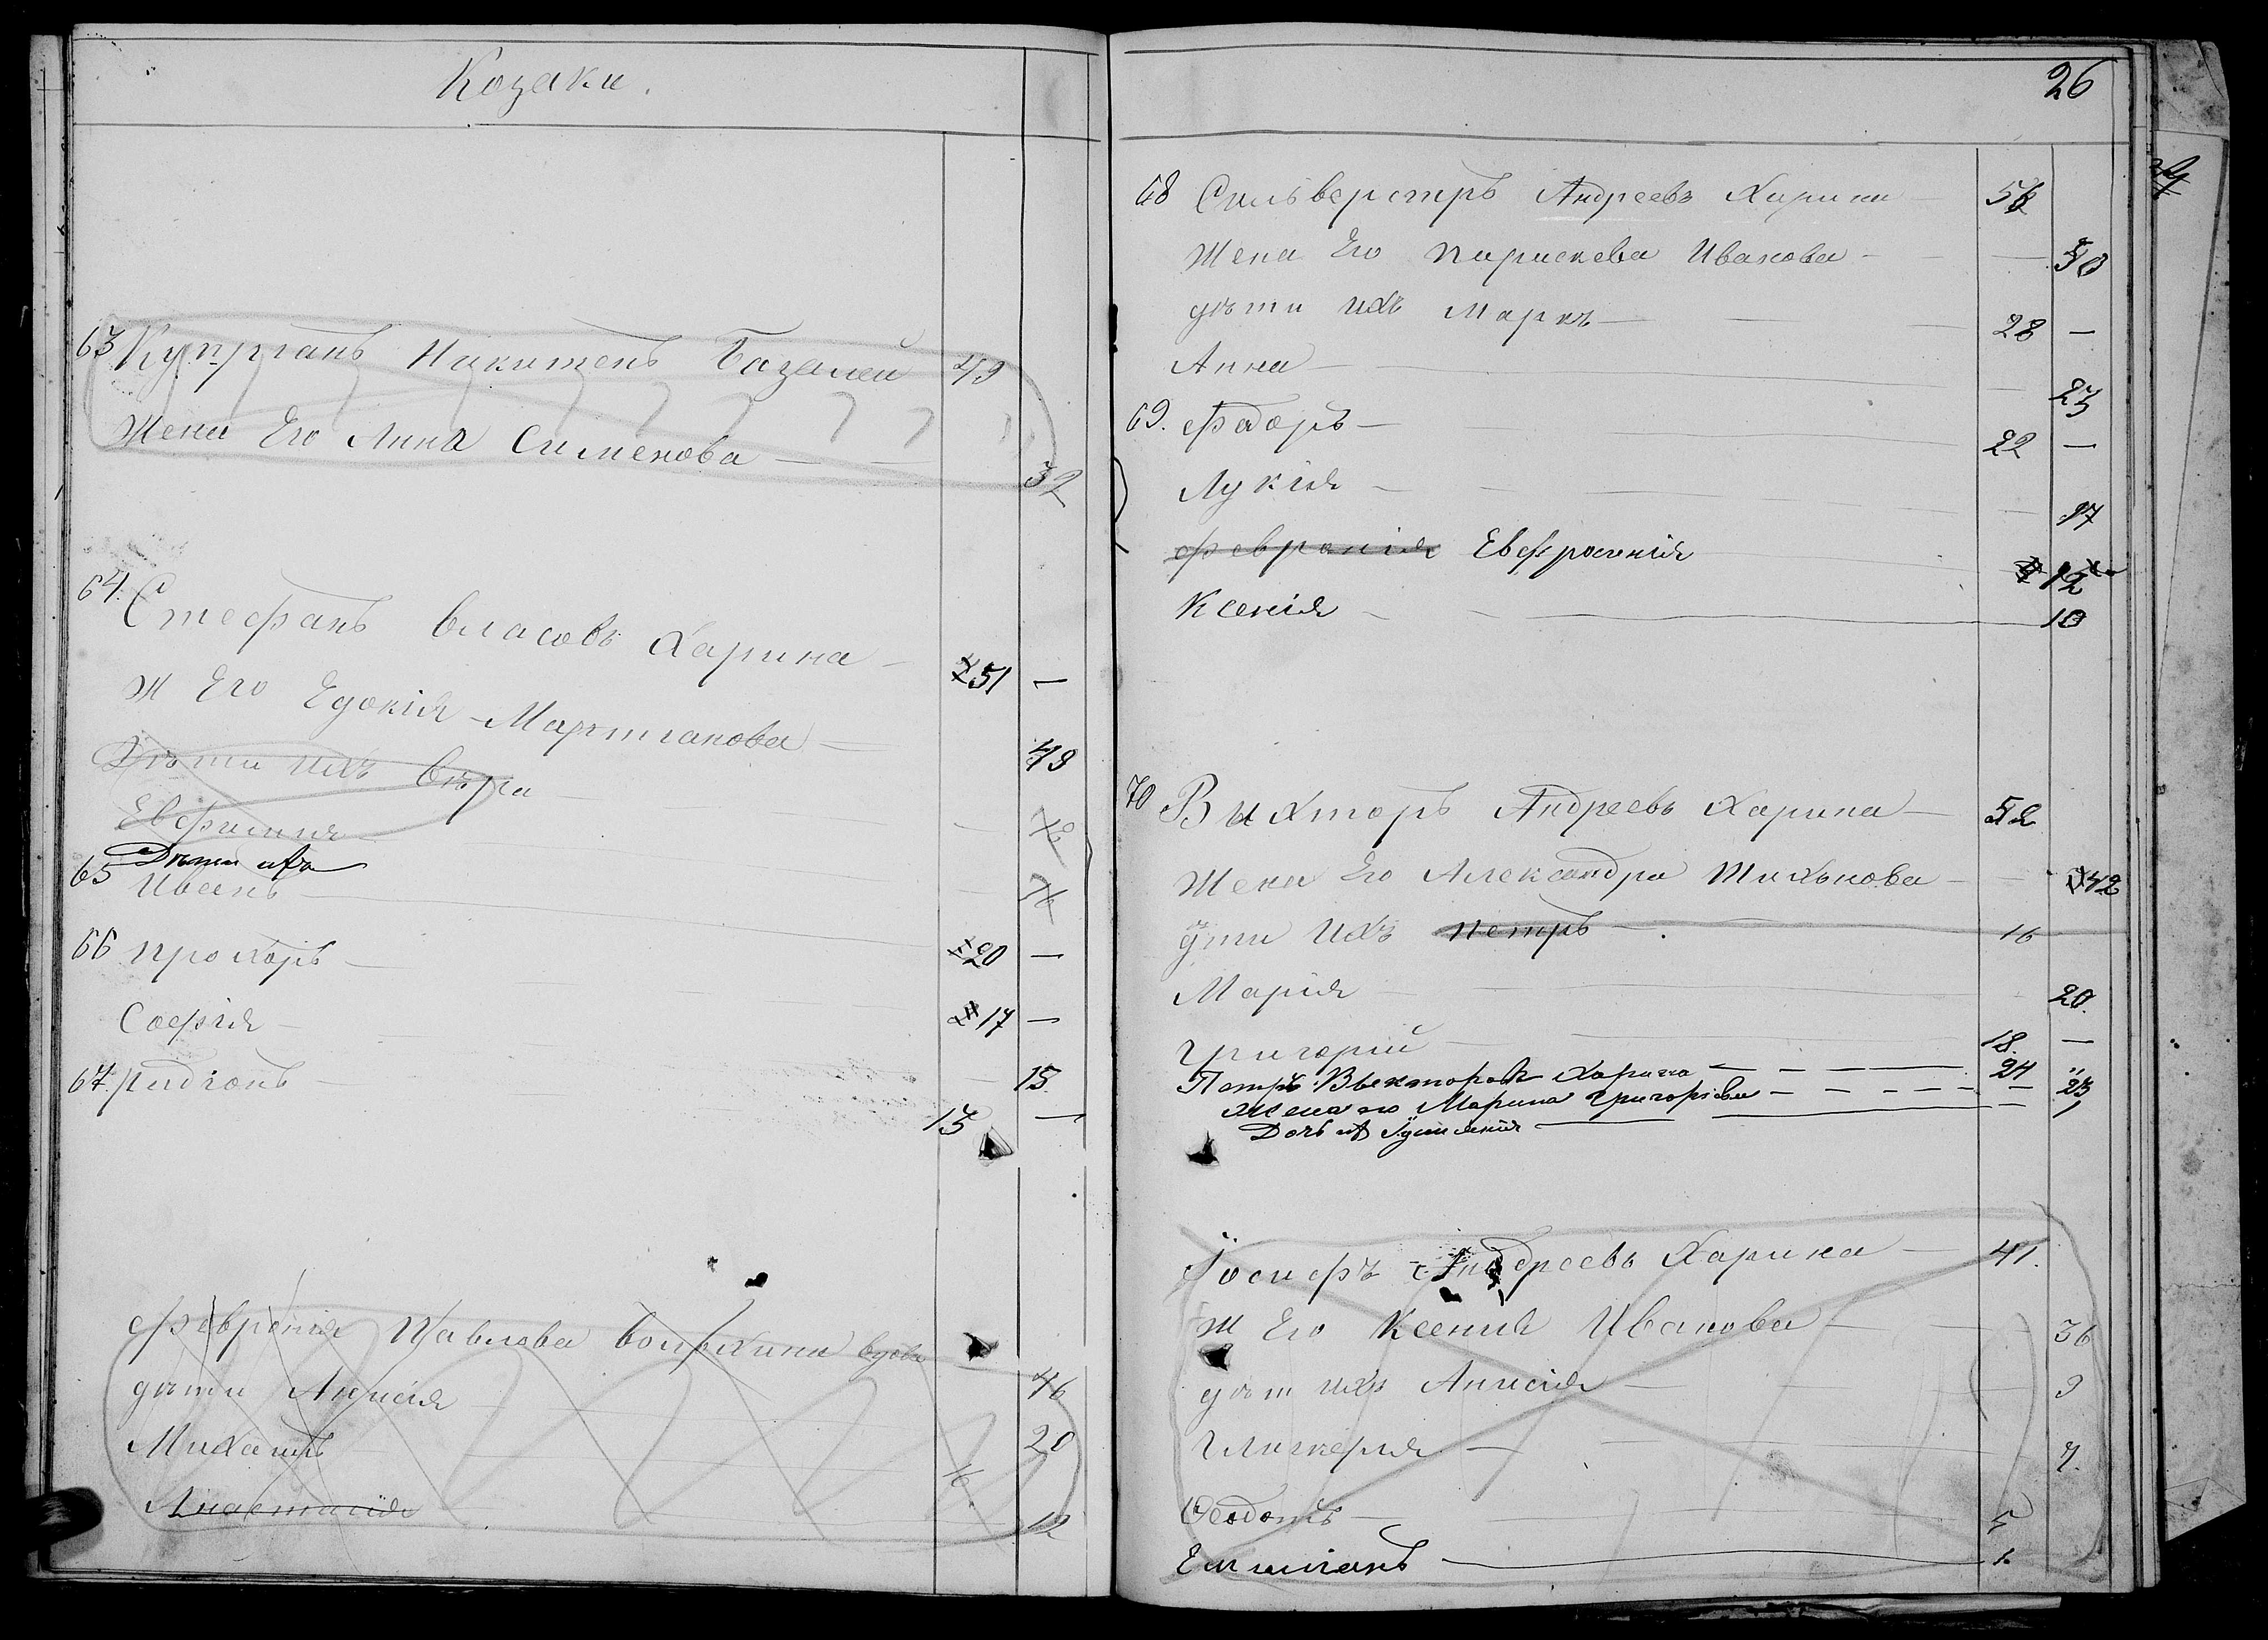 Козаки.
63 Купріанъ Никитенъ Базалей 49
Жена Его Анна Сименова — — 32
64. Стефанъ Власовъ Харина — 51 —
ж Его Едокія Мартианова — 49
Дѣти ихъ Вѣра
Евфимия
Дѣти ихъ
65 Иванъ — 20 —
66 Прохоръ — 17 —
Софія — 15
67. Родіонъ — 13 —
Февронія Павлова вдова 46
дѣти Анисія 20
Михаилъ 16.
Анастасія 12
26
68 Сильверстръ Андреевъ Харина — 56
Жена Его Параскева Иванова — 50
дѣти ихъ Маркъ — 28 —
Анна — 23
69. Фадоръ — 22 —
Лукія — 17
Февронія Евфросинія 12
Ксенія — 10
70 Вихторъ Андреевъ Харина — 52
Жена Его Александра Тихонова — 42
дти ихъ Петръ — 16
Марія 20.
Григорій — 18. —
Петръ Викторовъ Харина — — — 24 "
Жена его Марина Григоріева — — — 23
Дочь их — 1
Іосифъ Андреевъ Харина — 41.
ж Его Ксения Иванова — 36
дѣт ихъ Анисія — 9
Гликерія — 7.
Феодотъ — 5
Емилианъ — 1.